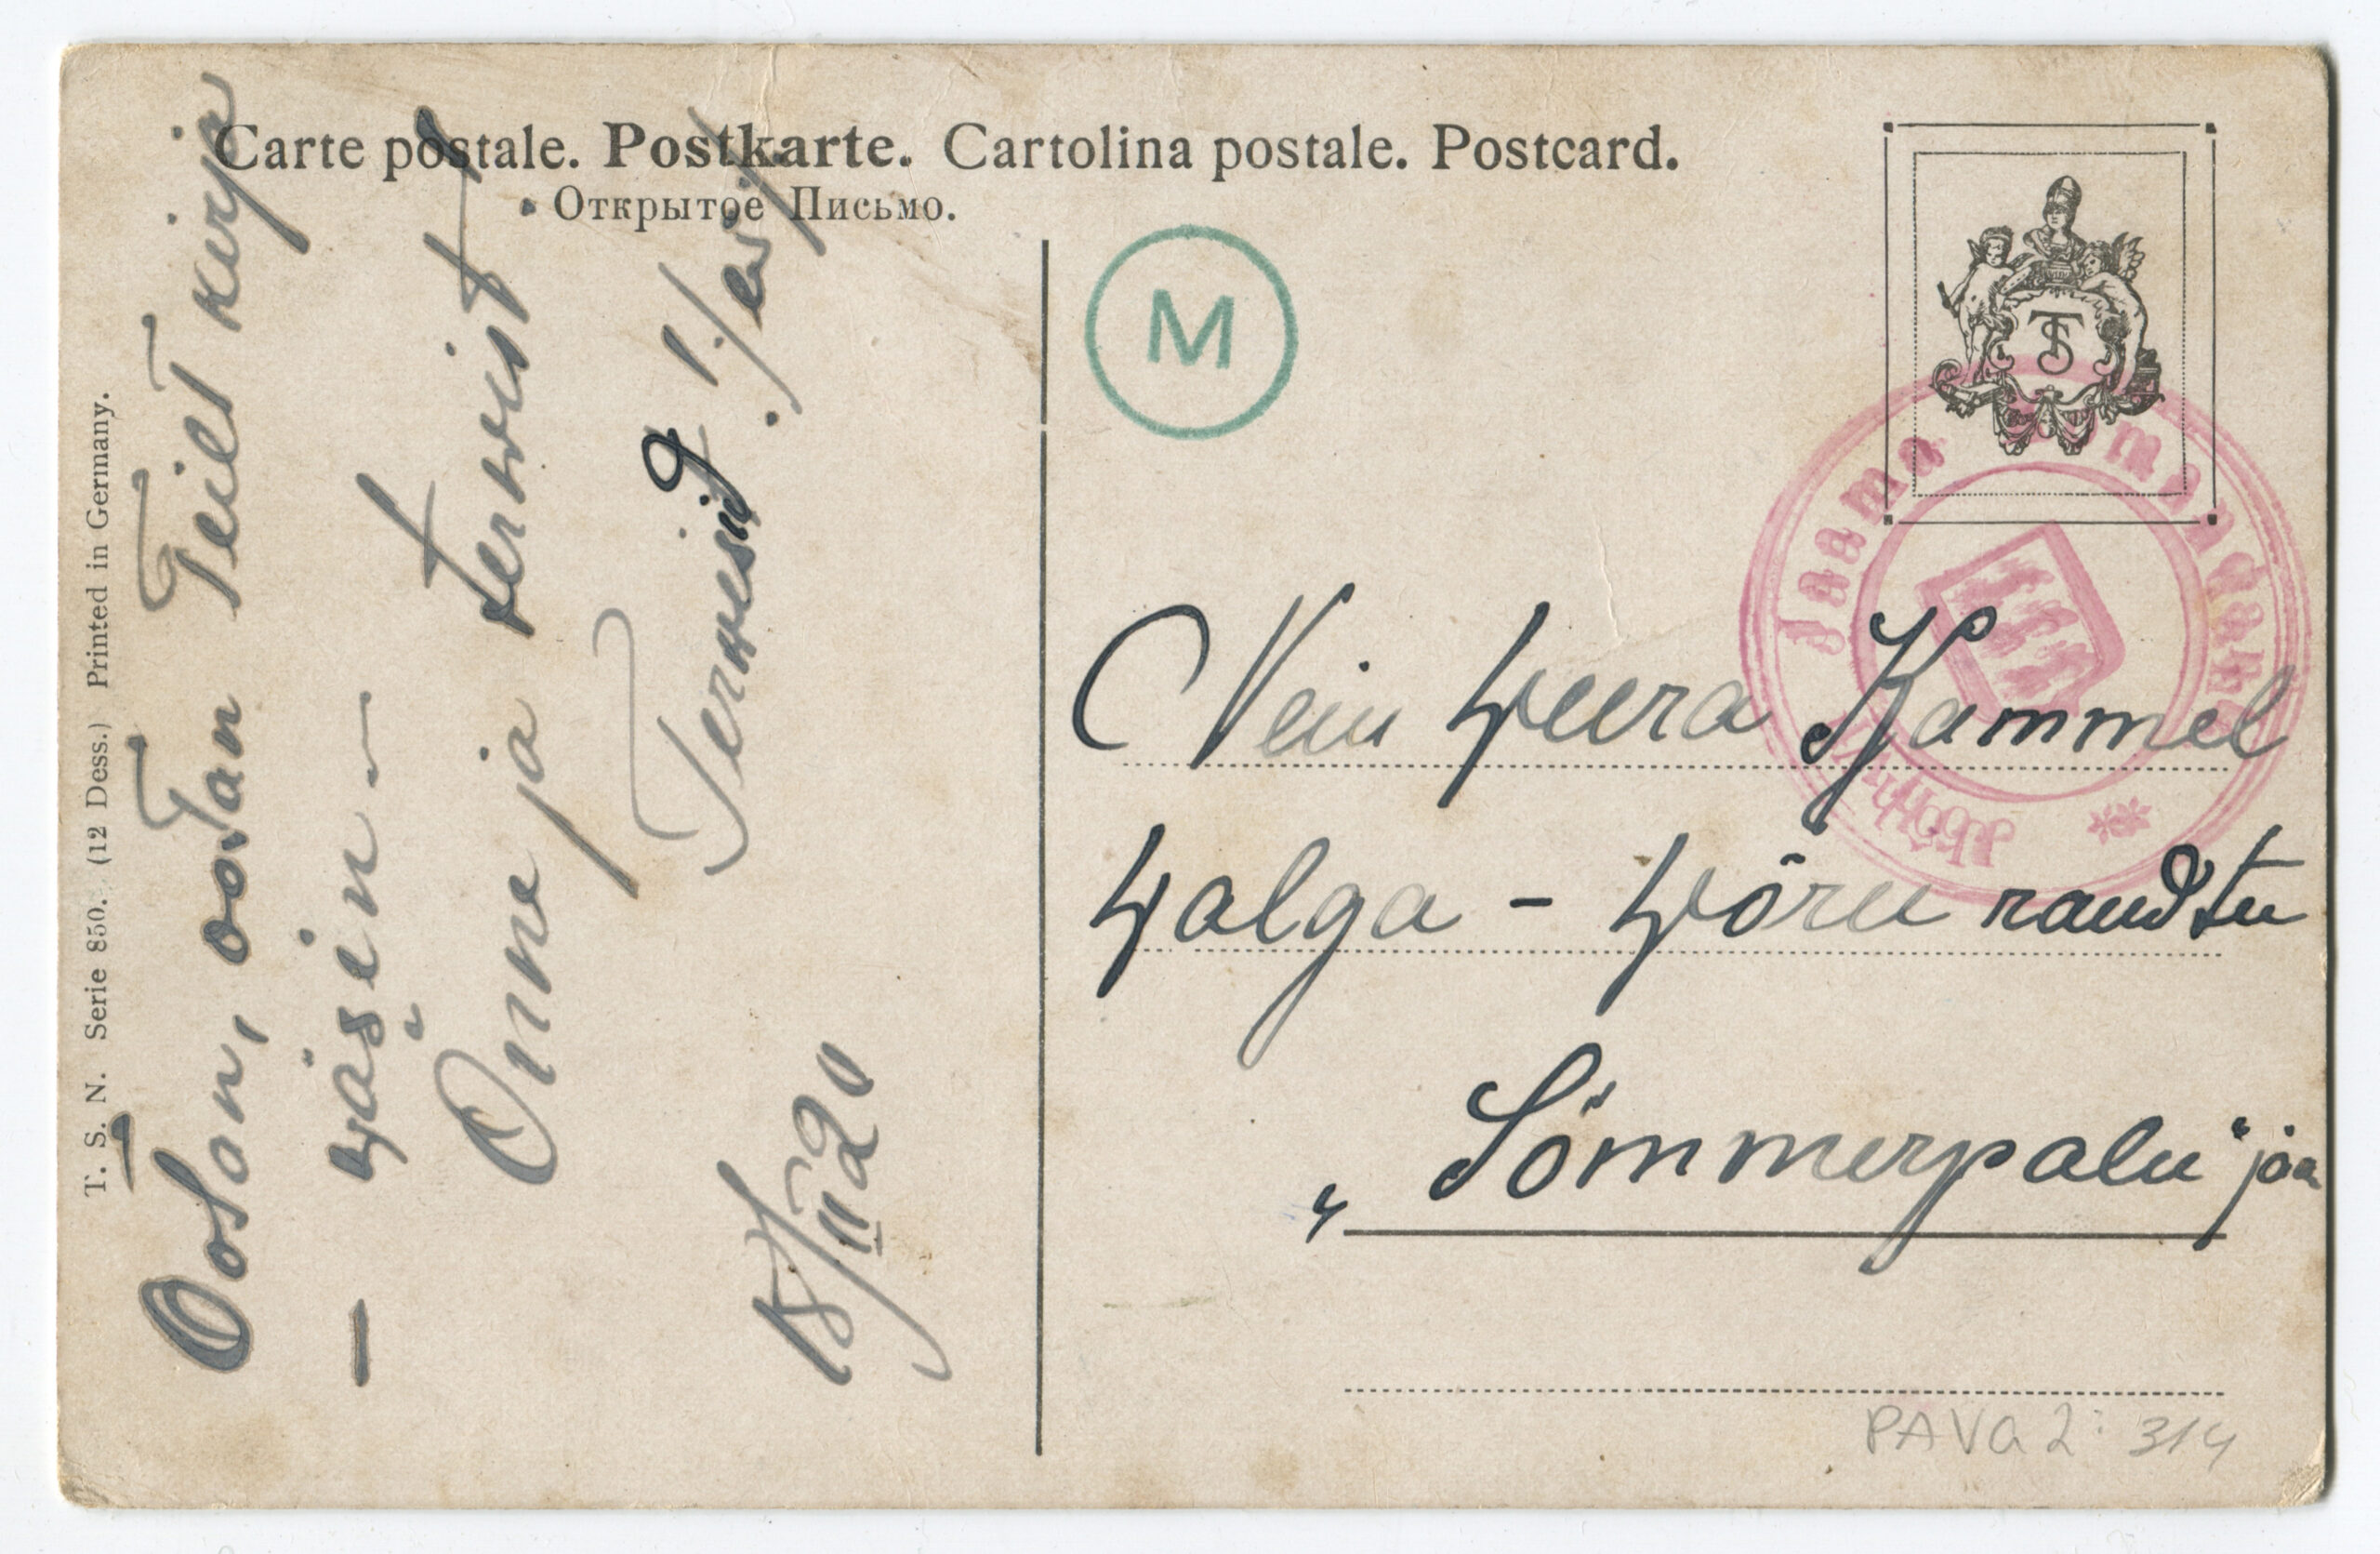 Carte postale. Postkarte. Cartolina postale. Postcard.
Открытое Письмо.
T. S. N. Serie 850. (12 Dess.) Printed in Germany.
Ootan, ootan Teilt kirja
– wäsin –
Õnne ja terwist
Terwesid
18/II 20
M
TS
Jaama
Neiu Weera Kammel
Walga – Wõru raudtee
„Sõmmerpalu" jaa
PAVA 2: 314